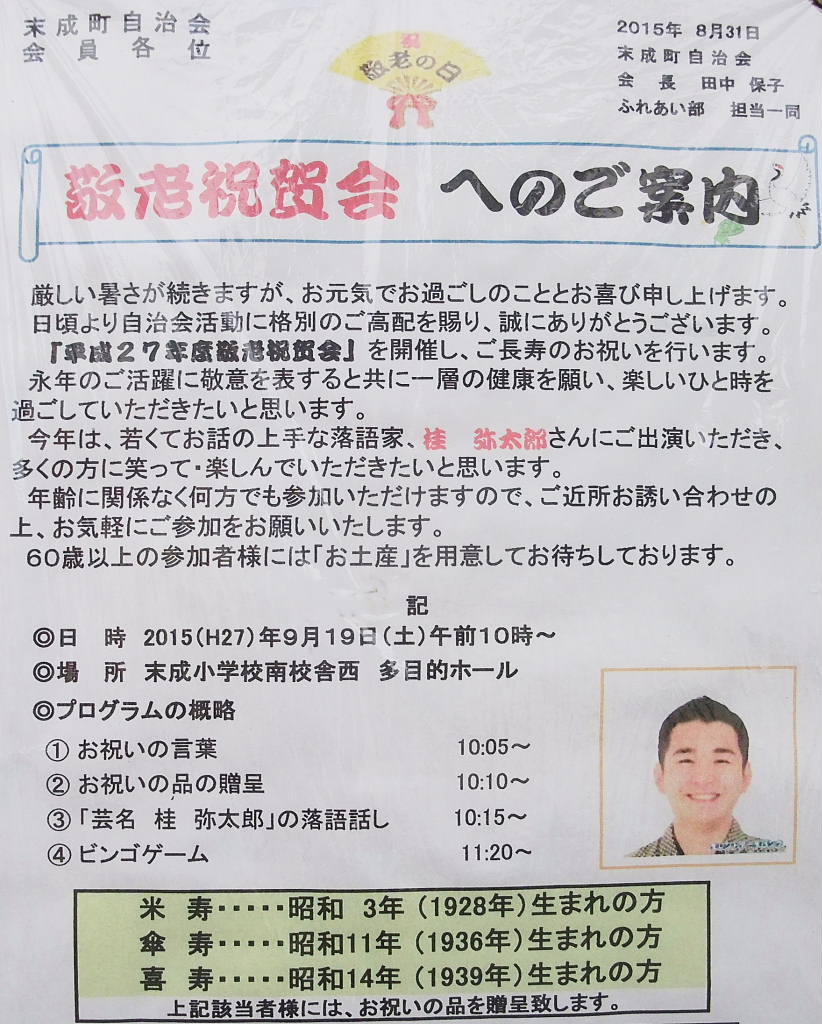 末成町自治会
会員各位
祝
敬老の日
2015年 8月31日
末成町自治会
会 長 田中 保子
ふれあい部 担当一同
敬老祝賀会 へのご案内
厳しい暑さが続きますが、お元気でお過ごしのこととお喜び申し上げます。
日頃より自治会活動に格別のご高配を賜り、誠にありがとうございます。
「平成27年度敬老祝賀会」を開催し、ご長寿のお祝いを行います。
永年のご活躍に敬意を表すると共に一層の健康を願い、楽しいひと時を
過ごしていただきたいと思います。
今年は、若くてお話の上手な落語家、桂 弥太郎さんにご出演いただき、
多くの方に笑って・楽しんでいただきたいと思います。
年齢に関係なく何方でも参加いただけますので、ご近所お誘い合わせの
上、お気軽にご参加をお願いいたします。
60歳以上の参加者様には「お土産」を用意してお待ちしております。
記
◎日 時 2015(H27)年9月19日(土)午前10時～
◎場 所 末成小学校南校舎西 多目的ホール
◎プログラムの概略
① お祝いの言葉 10:05～
② お祝いの品の贈呈 10:10～
③「芸名 桂 弥太郎」の落語話し 10:15～
④ ビンゴゲーム 11:20～
米 寿・・・・・昭和 3年(1928年)生まれの方
傘 寿・・・・・昭和11年(1936年)生まれの方
喜 寿・・・・・昭和14年(1939年)生まれの方
上記該当者様には、お祝いの品を贈呈致します。